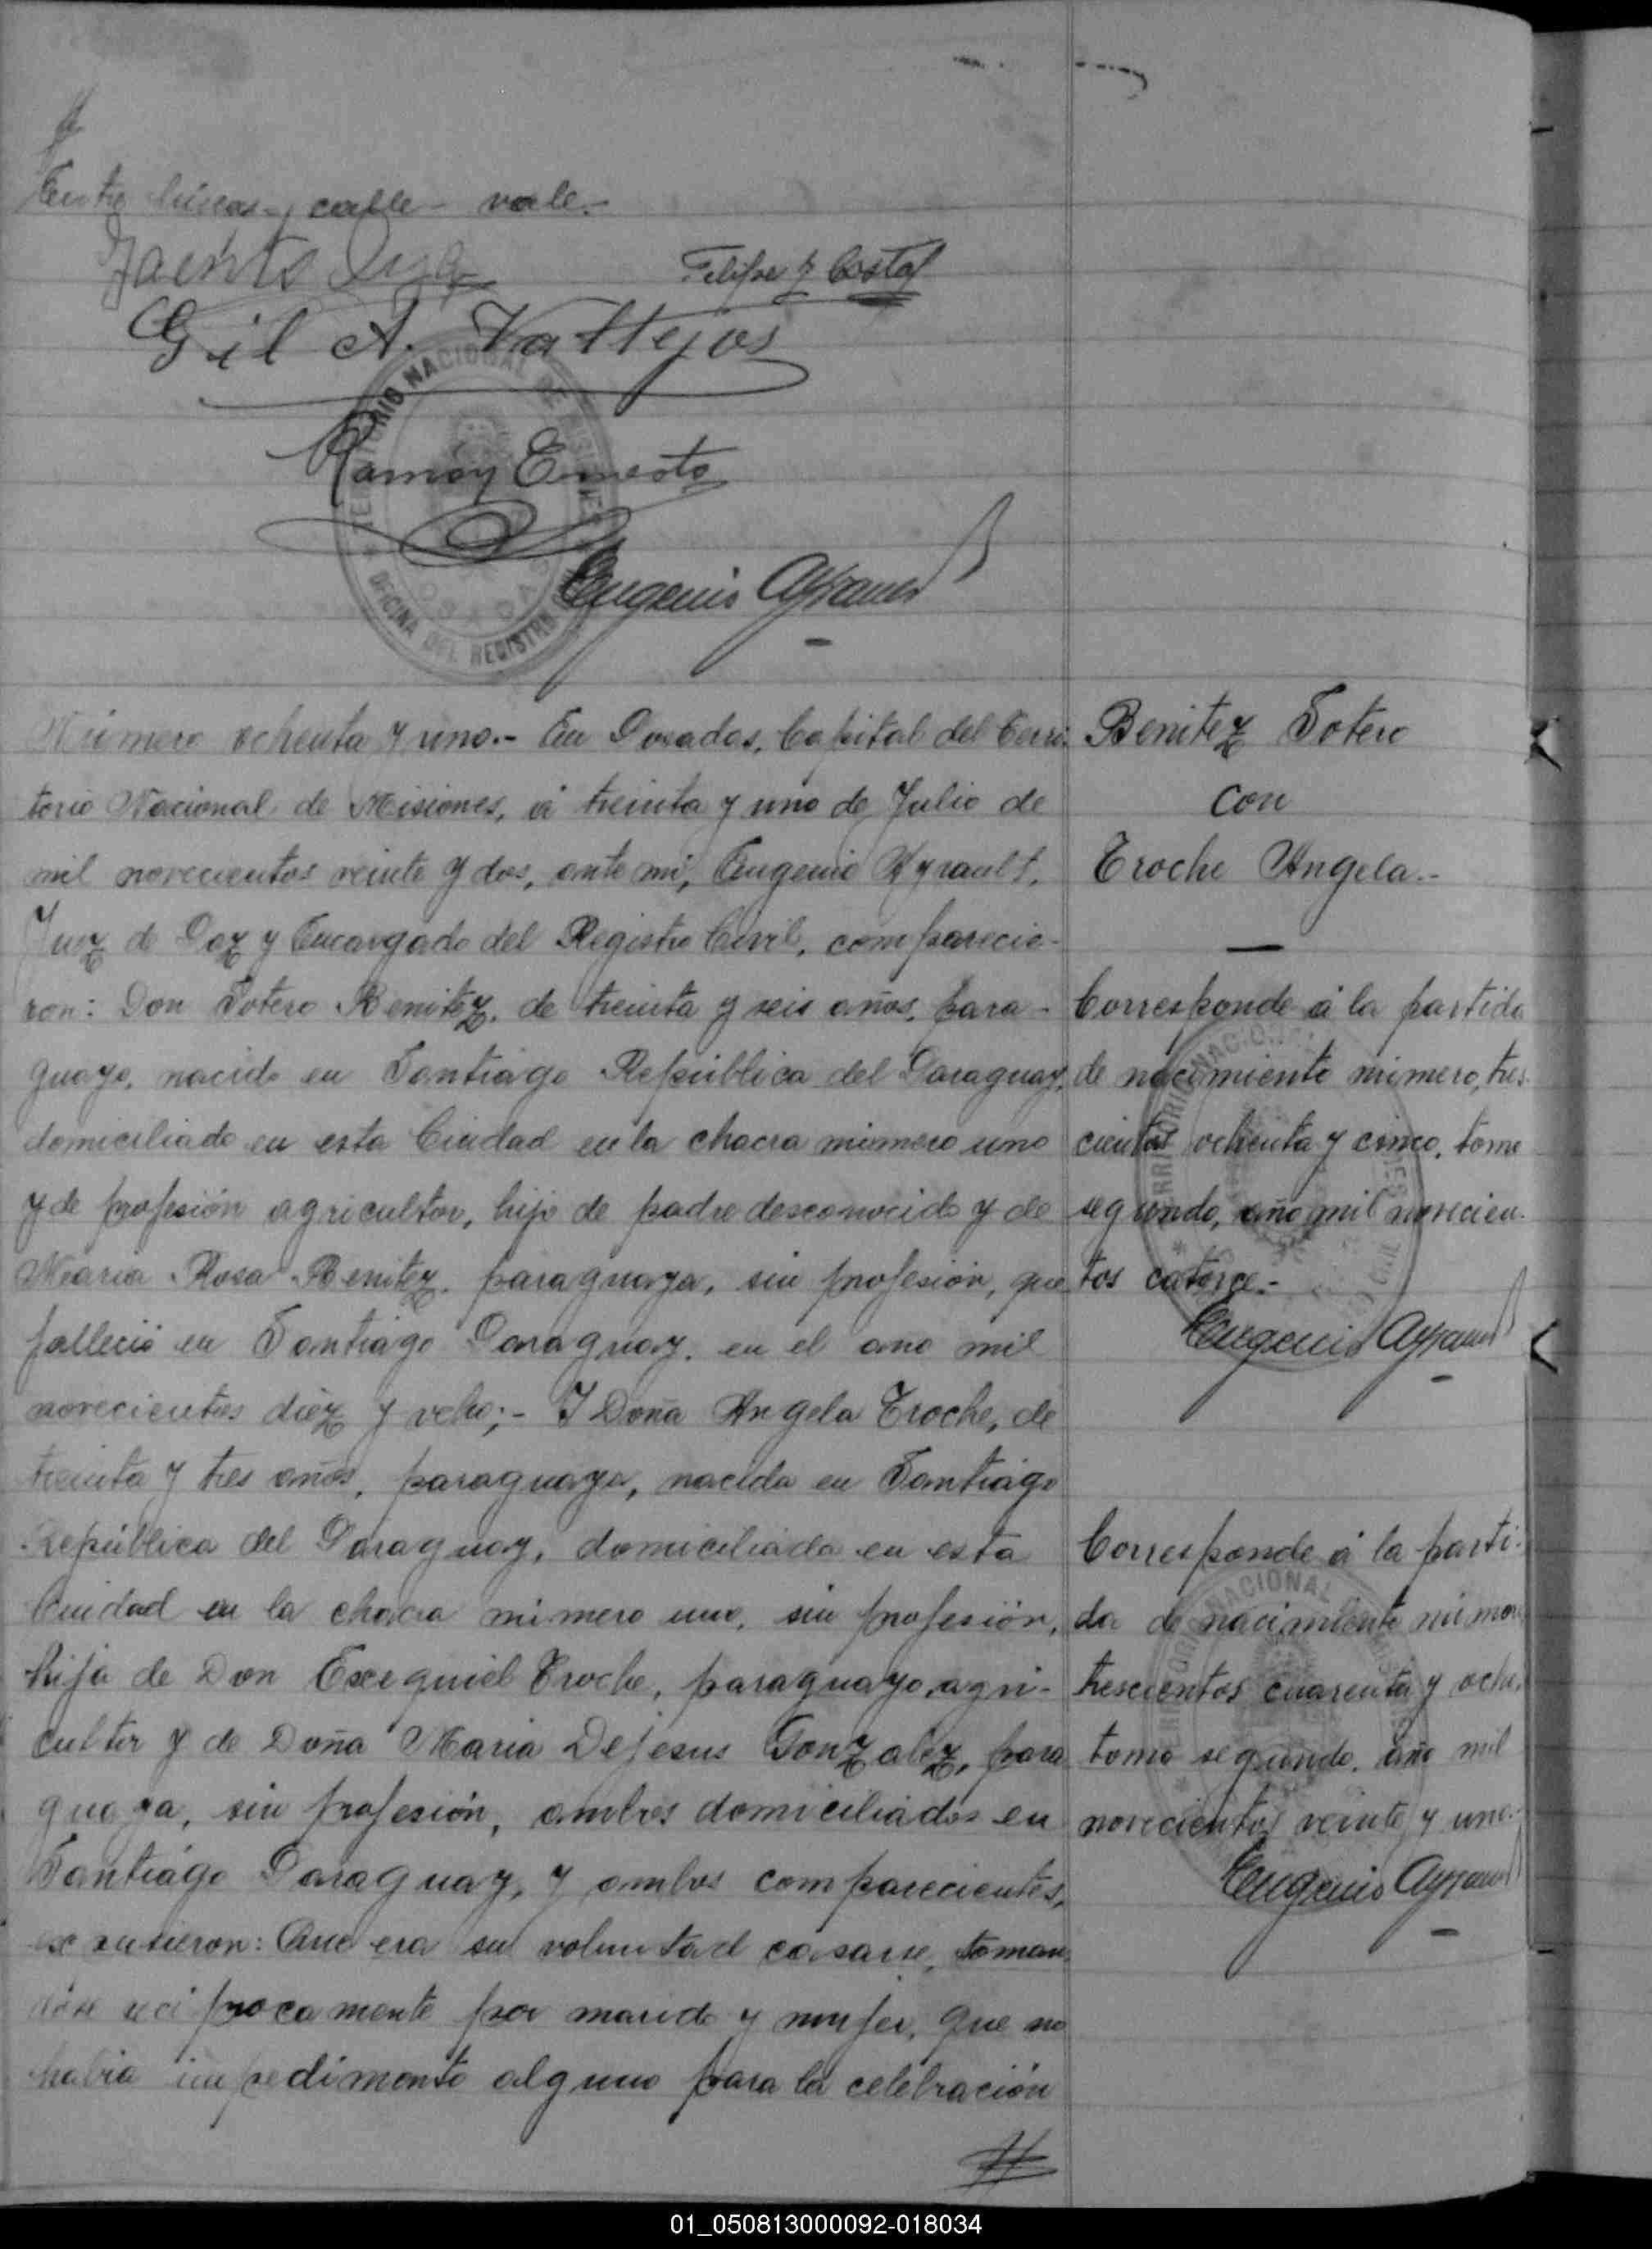 Entre lineas - calle - vale.-
Felipe J Costa
Gil A. Vallejos
Ramon Ernesto
Eugenio Ayrault
TERRITORIO NACIONAL DE MISIONES
OFICINA DEL REGISTRO
POSADAS
Número ochenta y uno.- En Posadas, Capital del Terri-
torio Nacional de Misiones, á treinta y uno de Julio de
mil novecientos veinte y dos, ante mi, Eugenio Ayrault,
Juez de Paz y Encargado del Registro Civil, comparecie-
ron: Don Sotero Benitez, de treinta y seis años, para-
guayo, nacido en Santiago República del Paraguay,
domiciliado en esta Ciudad en la chacra número uno
y de profesión agricultor, hijo de padre desconocido y de
Maria Rosa Benitez, paraguaya, sin profesión, que
falleció en Santiago Paraguay, en el año mil
novecientos diéz y ocho;- Y Doña Angela Troche, de
treinta y tres años, paraguaya, nacida en Santiago
República del Paraguay, domiciliada en esta
Ciudad en la chacra número uno, sin profesión,
hija de Don Exequiel Troche, paraguayo, agri-
cultor y de Doña Maria Dejesus Gonzalez, para
guaya, sin profesión, ambos domiciliados en
Santiago Paraguay, y ambos comparecientes,
expusieron: Que era su voluntad casarse, toman-
dose reciprocamente por marido y mujer, que no
habia impedimento alguno para la celebración
Benitez Sotero
con
Troche Angela.-
Corresponde á la partida
de nacimiento número, tres-
cientos ochenta y cinco, tomo
segundo, año mil novecien-
tos catorce.-
Eugenio Ayrault
Corresponde á la parti-
da de nacimiento número
trescientos cuarenta y ocho,
tomo segundo, año mil
novecientos veinte y uno.-
Eugenio Ayrault
01_050813000092-018034